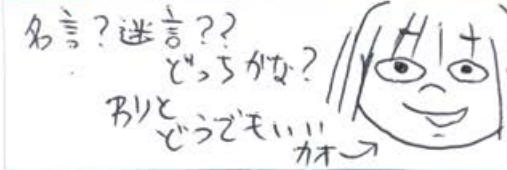 名言?迷言??
どっちかな?
わりと
どうでもいい
カオ→